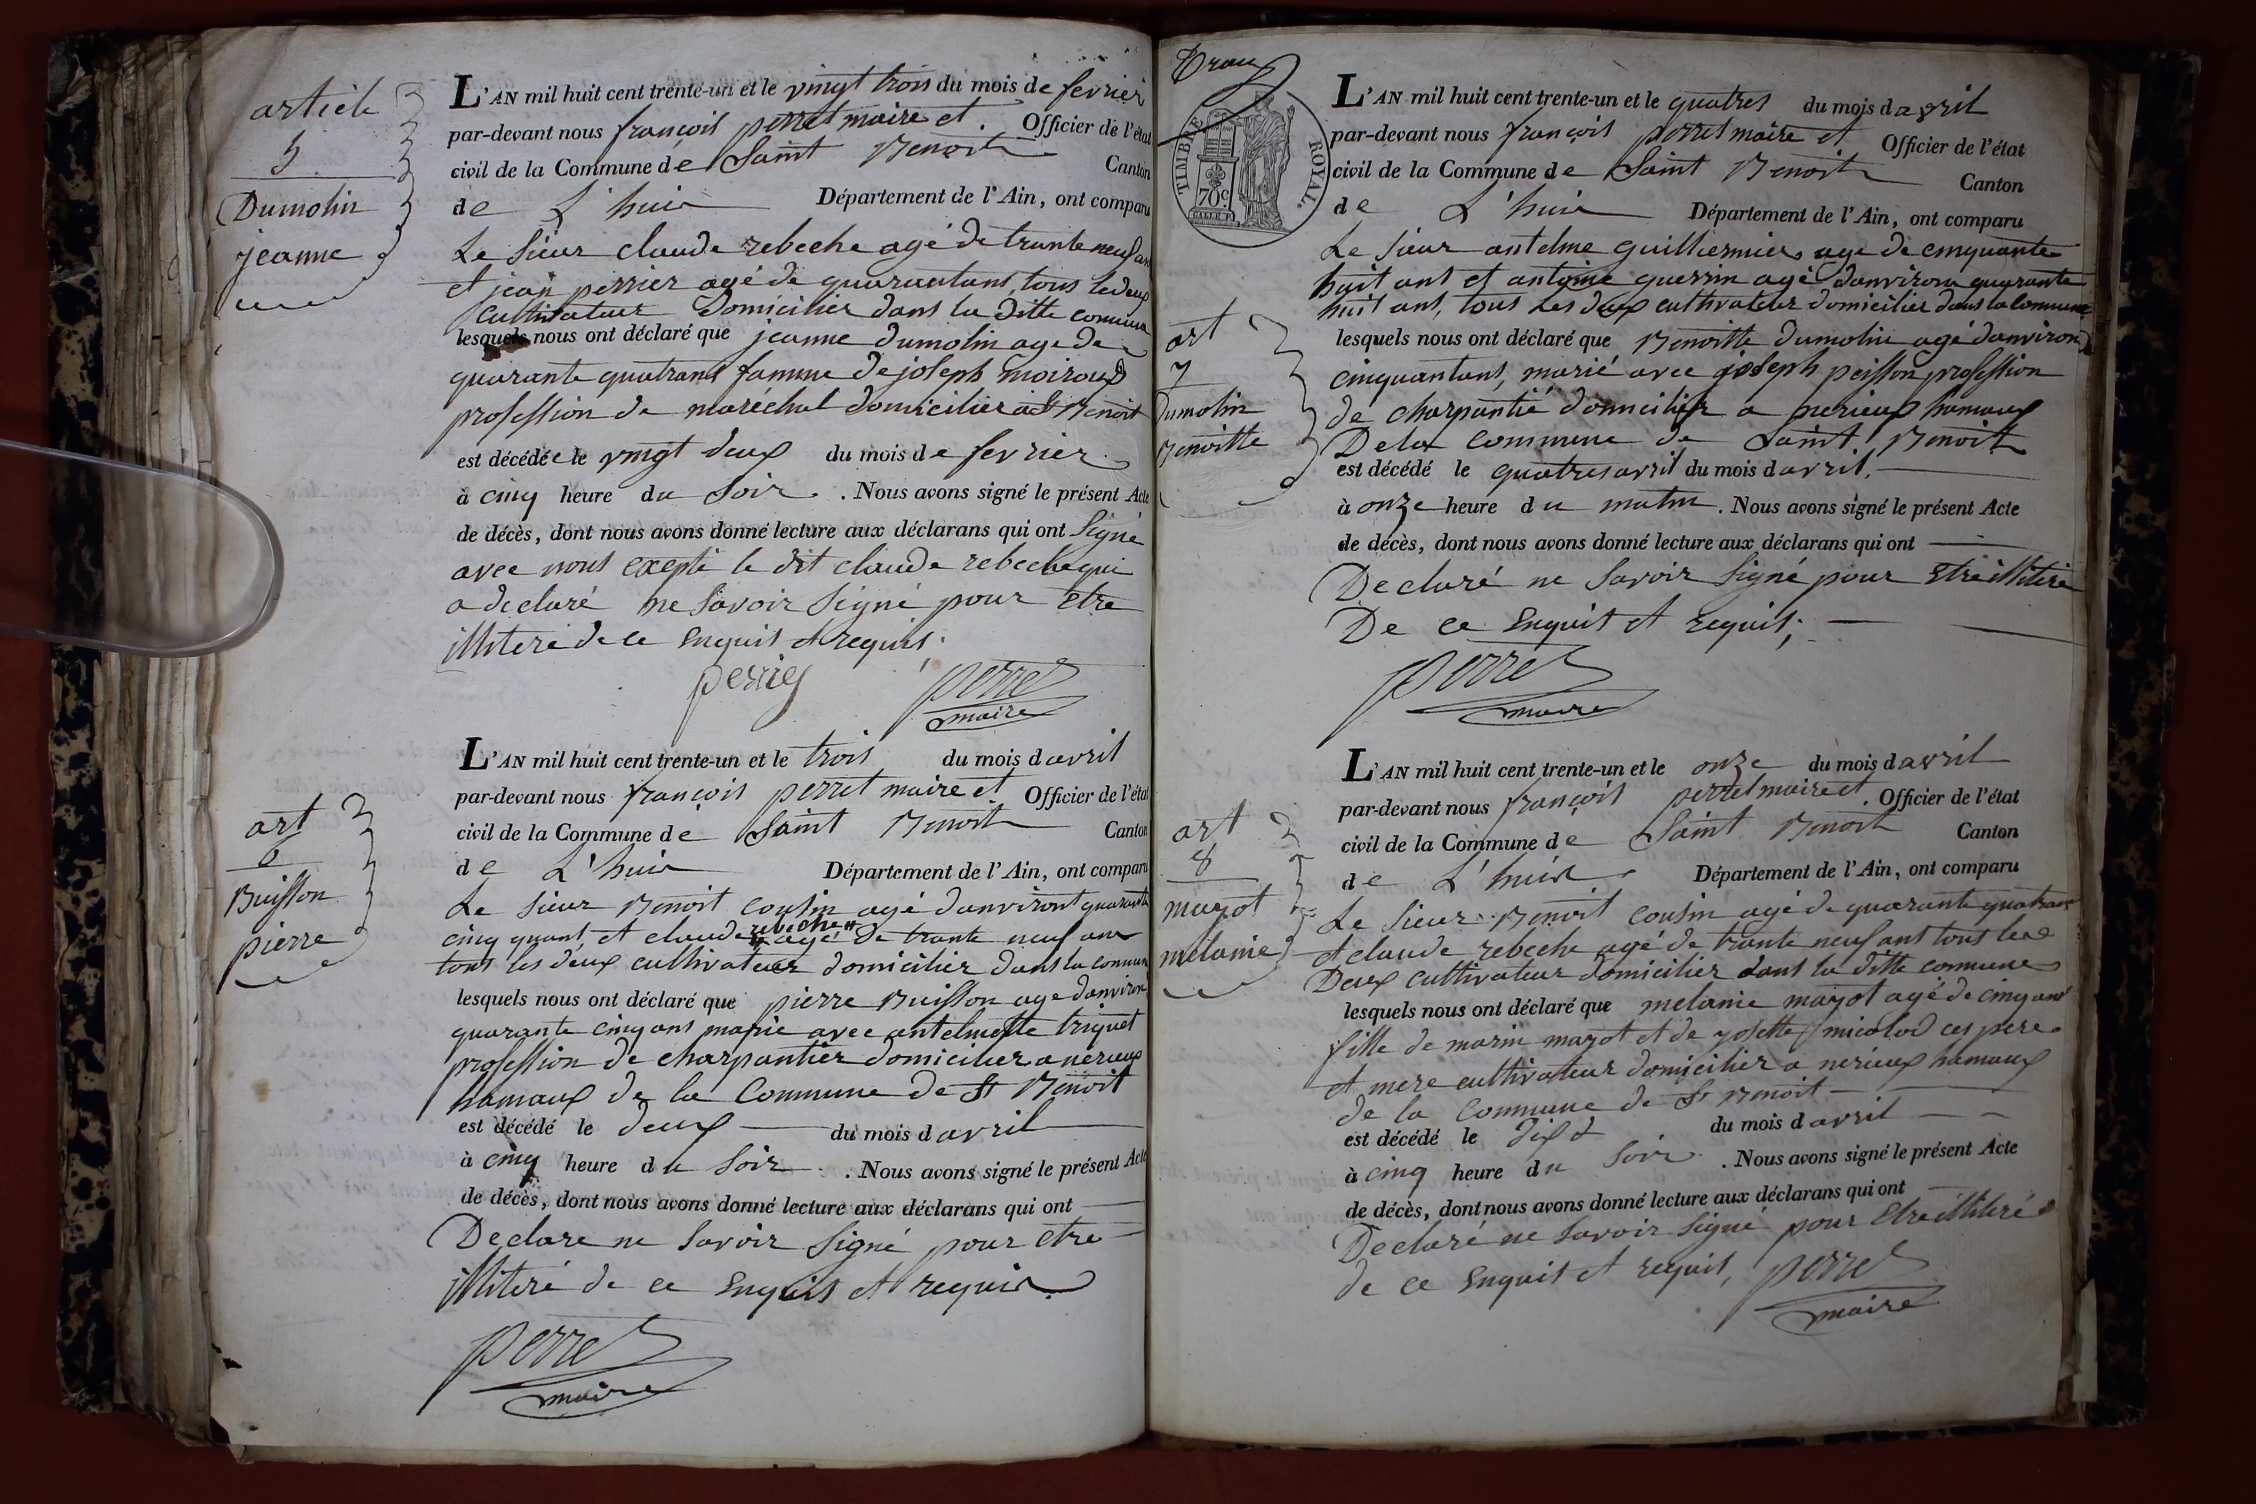 article
5
Dumolin
jeanne
L'AN mil huit cent trente-un et le vingt trois du mois de fevrier
par-devant nous françois perret maire et Officier de l'état
civil de la Commune de Saint Benoit Canton
de L'huis Département de l'Ain, ont comparu
Le sieur claude rebeche agé de trante neuf ans
et jean perrier agé de quarantans, tous le deux
cultivateur domicilier dans la ditte commune
lesquels nous ont déclaré que jeanne dumolin age de
quarante quatrans famme de joseph moiroux
profession de marechal domicilier a St Benoit
est décédée le vingt deux du mois de fevrier
à cinq heure du soir. Nous avons signé le présent Acte
de décès, dont nous avons donné lecture aux déclarans qui ont signé
avec nous excepté le dit claude rebeche qui
a declaré ne savoir signé pour etre
illiteré de ce enquis et requis;
perrier perret
maire
art
6
Buisson
pierre
L'AN mil huit cent trente-un et le trois du mois d avril
par-devant nous françois perret maire et Officier de l'état
civil de la Commune de Saint Benoit Canton
de L'huis Département de l'Ain, ont comparu
Le sieur Benoit cousin agé danviront quarante
cinq quant et claude rebeche agé de trante neuf ans
tous les deux cultivateur domicilier dans la commune
lesquels nous ont déclaré que pierre Buisson age danviron
quarante cinq ans marie avec antelmette triquet
profession de charpantier domicilier a nerieux
hamaux de la Commune de St Benoit
est décédé le deux du mois d avril
à cinq heure du soir. Nous avons signé le présent Acte
de décès, dont nous avons donné lecture aux déclarans qui ont
Declare ne savoir signé pour etre
illiteré de ce enquis et requis.
perret
maire
TIMBRE ROYAL.
70c.
L'AN mil huit cent trente-un et le quatres du mois d avril
par-devant nous françois perret maire et Officier de l'état
civil de la Commune de Saint Benoit Canton
de L'huis Département de l'Ain, ont comparu
Le sieur antelme guilliermier age de cinquante
huit ans et antoine guerrin agé danviron quarante
huit ans, tous les deux cultivateur domicilier dans la commune
art
7
Dumolin
Benoitte
lesquels nous ont déclaré que Benoitte dumolin agé danviron
cinquantans, marié avec joseph peisson profession
de charpantié domicilier a nerieux hamaux
De la commune de Saint Benoit
est décédé le quatres avril du mois d avril.
à onze heure du matin. Nous avons signé le présent Acte
de décès, dont nous avons donné lecture aux déclarans qui ont
Declaré ne savoir signé pour etre illiteré
De ce enquit et requis;
perret
maire
L'AN mil huit cent trente-un et le onze du mois d avril
par-devant nous françois perret maire et. Officier de l'état
civil de la Commune de Saint Benoit Canton
de L'huis Département de l'Ain, ont comparu
art
8
mayot
melanie
Le sieur Benoit cousin agé de quarante quatrans
et claude rebeche agé de trante neuf ans tous les
Deux cultivateur domicilier dans la ditte commune
lesquels nous ont déclaré que melanie mayot agé de cinq ans
fille de marin mayot et de josette micolod ces pere
et mere cultivateur domicilier a nerieux hamaux
de la Commune de St Benoit
est décédé le dix du mois d avril
à cinq heure du soir. Nous avons signé le présent Acte
de décès, dont nous avons donné lecture aux déclarans qui ont
Declaré ne savoir signé pour etre illiteré
de ce enquit et requis, perret
maire